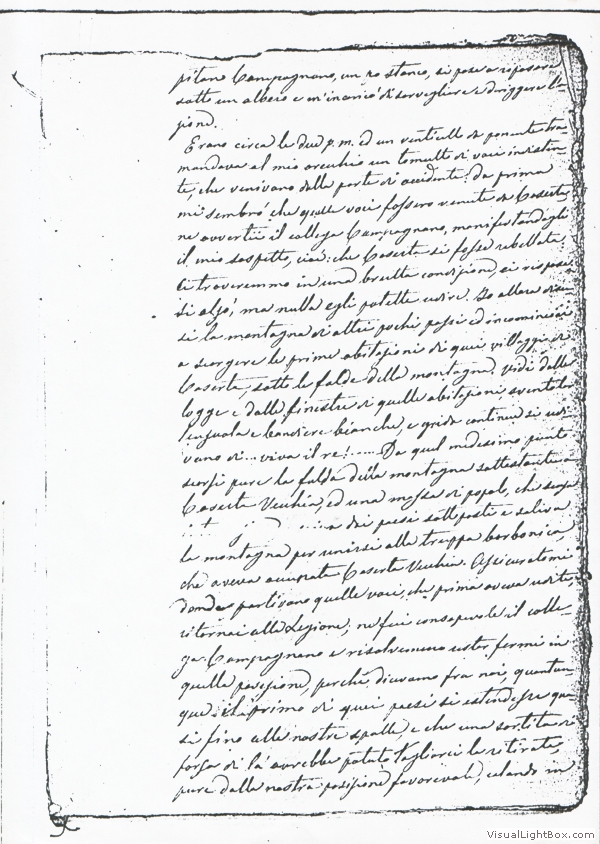 pitano Campagnano, un po stanco, si pose a riposare
sotto un albero e m'incaricò di sorvegliare e dirigger le-
gione.
Erano circa le due p.m. ed un venticello di ponente tra-
mandava al mio orecchio un tumulto di voci insisten-
te, che venivano dalla parte di occidente. Da prima
mi sembrò che quelle voci fossero venute da Caserta,
ne avvertii il collega Campagnano, manifestandogli
il mio sospetto, cioè: che Caserta si fosse ribellata,
ci troveremmo in una brutta condizione, ei rispose
si alzò, ma nulla egli potette udire. Io allora
si la montagna di altri pochi passi ed incominciai
a scorgere le prime abitazioni di quei villaggi di
Caserta, sotto le falde della montagna. Vidi dalle
logge e dalle finestre di quelle abitazioni, sventolar
lenzuola e bandiere bianche, e grida continue si udi-
vano di... viva il re!..... Da quel medesimo punto
scorsi pure la falda della montagna sottostante a
Caserta Vecchia, ed una massa di popolo, che
dai paesi sottoposti e saliva
la montagna per unirsi alla truppa borbonica,
che aveva occupata Caserta Vecchia. Assicuratomi
donde partivano quelle voci, che prima aveva udite,
ritornai alla Legione, ne feci consapevole il colle-
ga Campagnano e risolvemmo star fermi in
quella posizione, perchè dicevamo fra noi, quantun-
que il primo di quei paesi si estendesse qua-
si fino alle nostre spalle, e che una sortita di
forza di là avrebbe potuto tagliarci la ritirata,
pure dalla nostra posizione favorevole, calando in
VisualLightBox.com